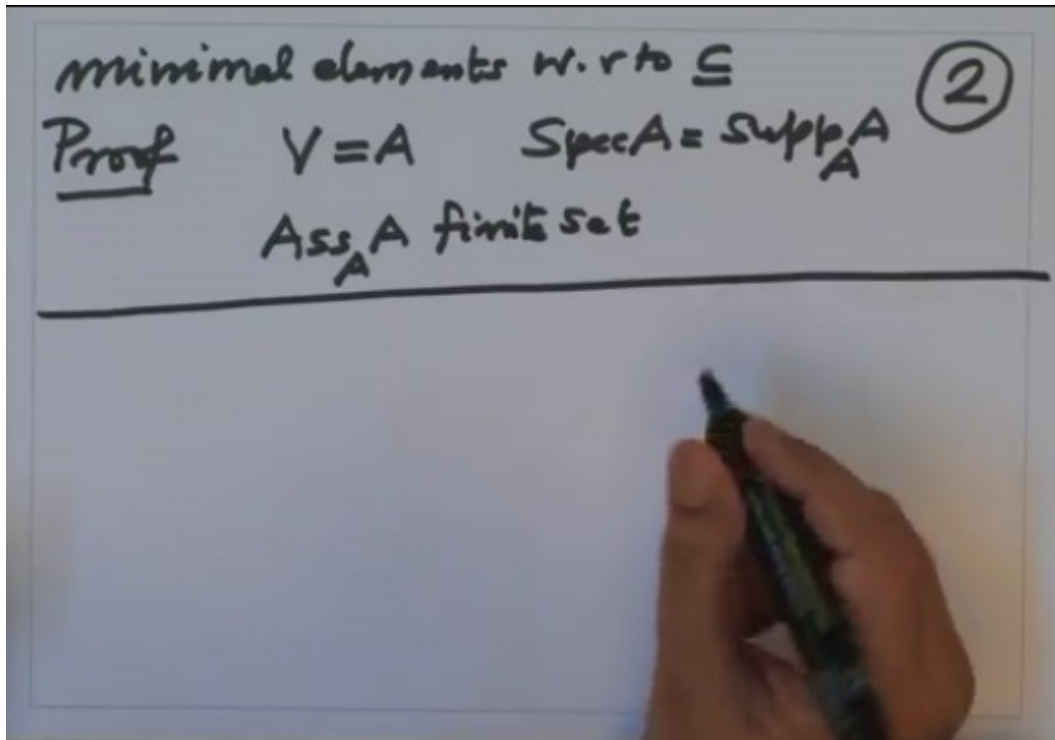 minimal elements w.r to ⊆
②
Proof V = A Spec A = Supp_A A
Ass_A A finite set